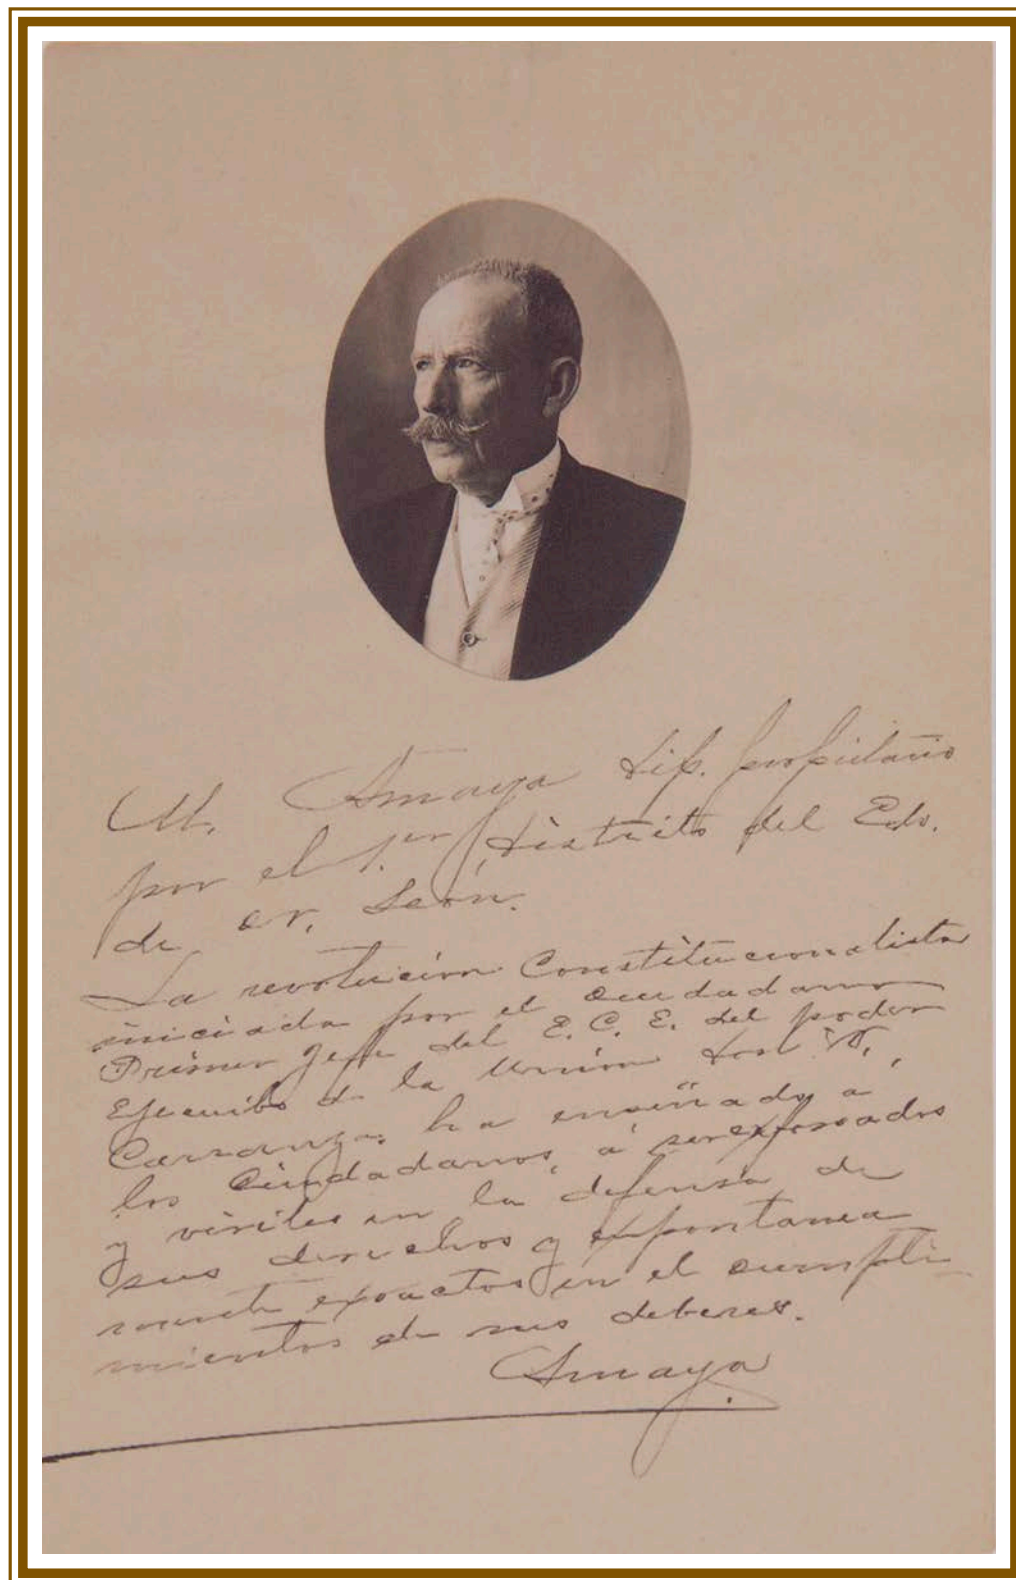 M. Amaya Dip. propietario
por el 1.er Distrito del Edo.
de N. León.
La revolución Constitucionalista
iniciada por el Ciudadano
Primer Jefe del E. C. E. del poder
Ejecutivo de la Unión Don V.
Carranza, ha enseñado a
los Ciudadanos, á ser esforzados
y viriles en la defensa de
sus derechos y expontanea
mente exactos en el cumpli
mientos de sus deberes.
Amaya